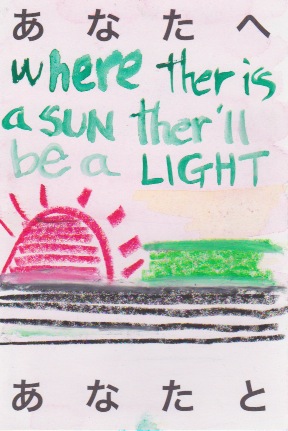 あなたへ
where ther is
a SUN ther'll
be a LIGHT
あなたと